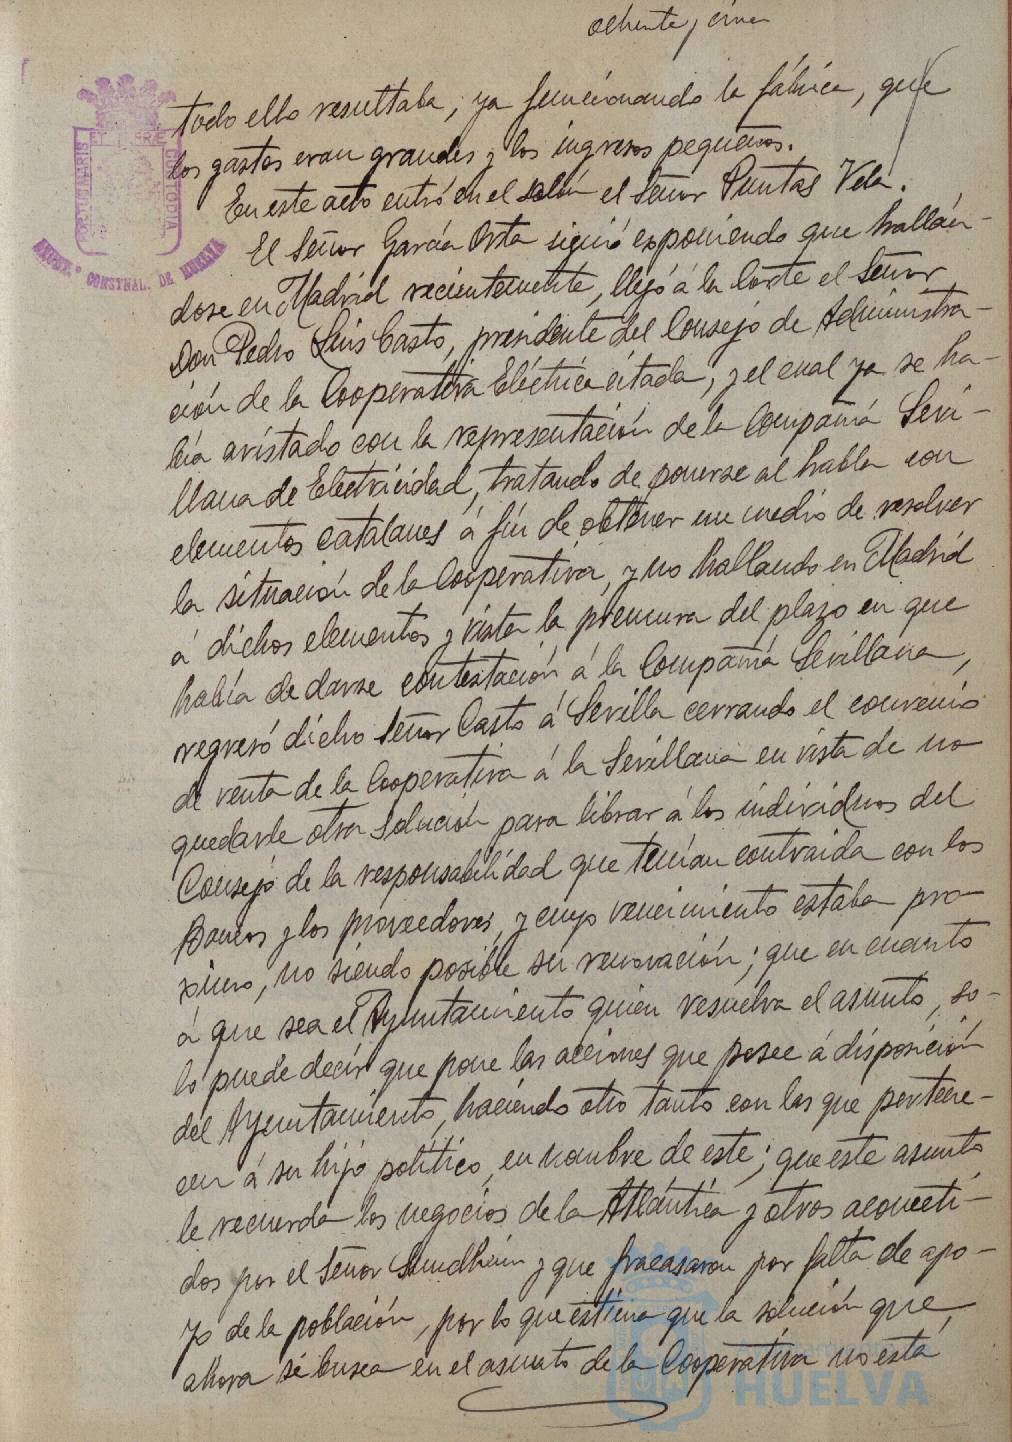 ochenta y cinco
todo ello resultaba, ya funcionando la fábrica, que
los gastos eran grandes y los ingresos pequeños.
En este acto entró en el salón el Señor Puntas Vela.
El Señor García Orta siguió exponiendo que hallán-
dose en Madrid recientemente, llegó á la Corte el Señor
Don Pedro Luis Casto, presidente del Consejo de Administra-
ción de la Cooperativa Eléctrica citada, y el cual ya se ha-
bía avistado con la representación de la Compañía Sevi-
llana de Electricidad, tratando de ponerse al habla con
elementos catalanes á fin de obtener un medio de resolver
la situación de la Cooperativa, y no hallando en Madrid
á dichos elementos y vista la premura del plazo en que
había de darse contestación á la Compañía Sevillana,
regresó dicho Señor Casto á Sevilla cerrando el convenio
de venta de la Cooperativa á la Sevillana en vista de no
quedarle otra solución para librar á los individuos del
Consejo de la responsabilidad que tenían contraida con los
Bancos y los proveedores, y cuyo vencimiento estaba pró-
ximo, no siendo posible su renovación; que en cuanto
á que sea el Ayuntamiento quien resuelva el asunto, so-
lo puede decir que pone las acciones que posee á disposición
del Ayuntamiento, haciendo otro tanto con las que pertene-
cen á su hijo político, en nombre de este; que este asunto
le recuerda los negocios de la Atlántica y otros acometi-
dos por el Señor Sundheim y que fracasaron por falta de apo-
yo de la población, por lo que estima que la solución que
ahora se busca en el asunto de la Cooperativa no está
CUSTODIA
CONSTNAL. DE HUELVA
HUELVA